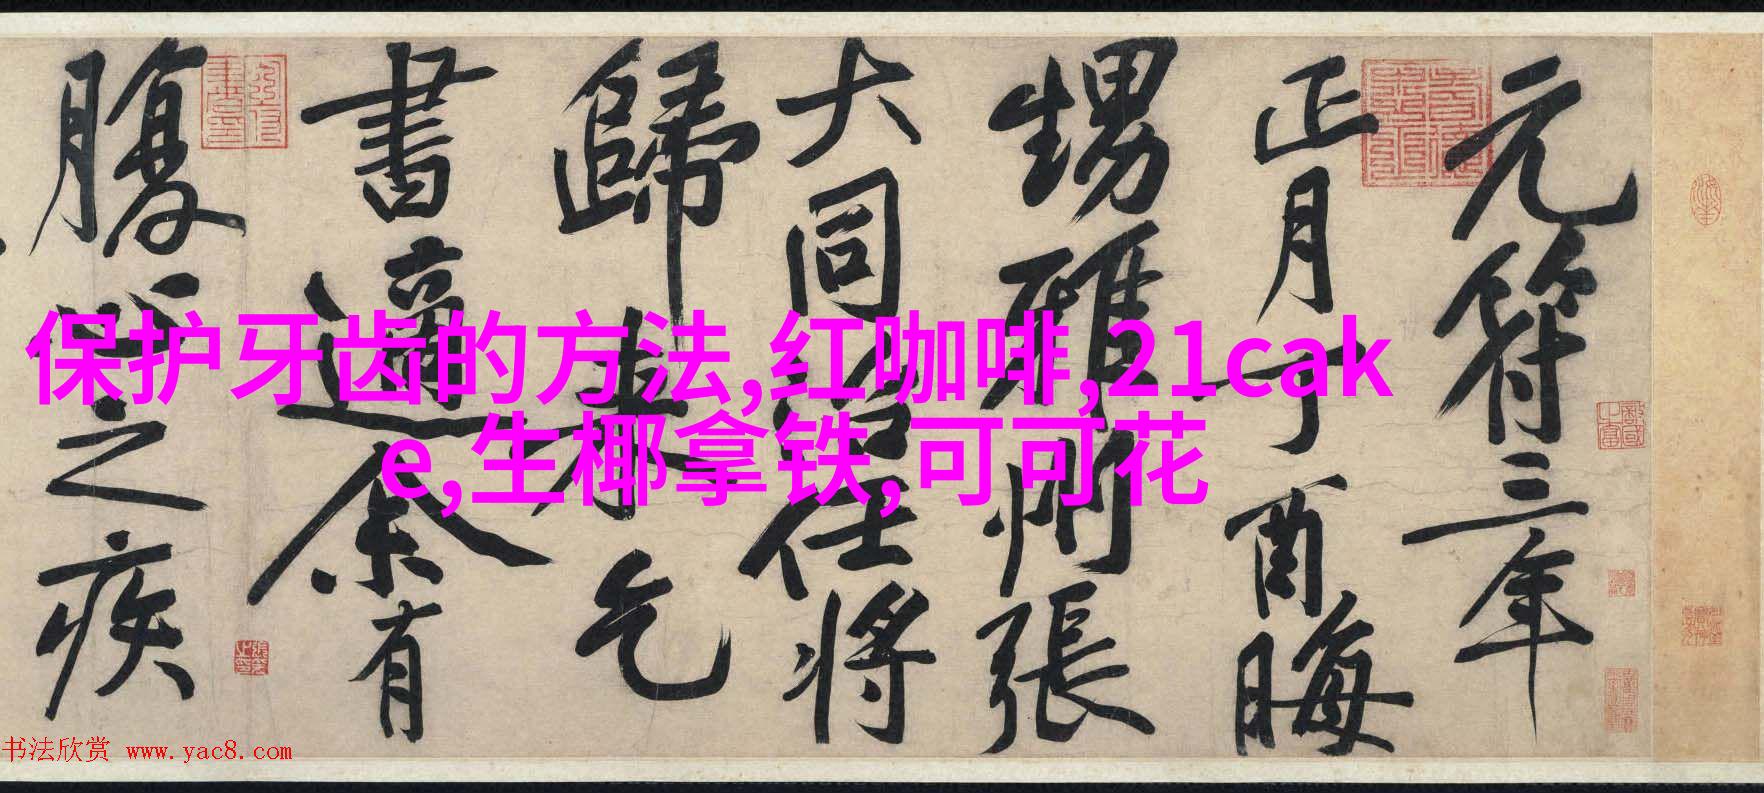 元符三年
正月丁酉晦
甥雅州張
大同治任將
歸來乞
書適余有
腹心之疾
保护牙齿的方法,红咖啡,21cak
e,生椰拿铁,可可花
书法欣赏 www.yac8.com